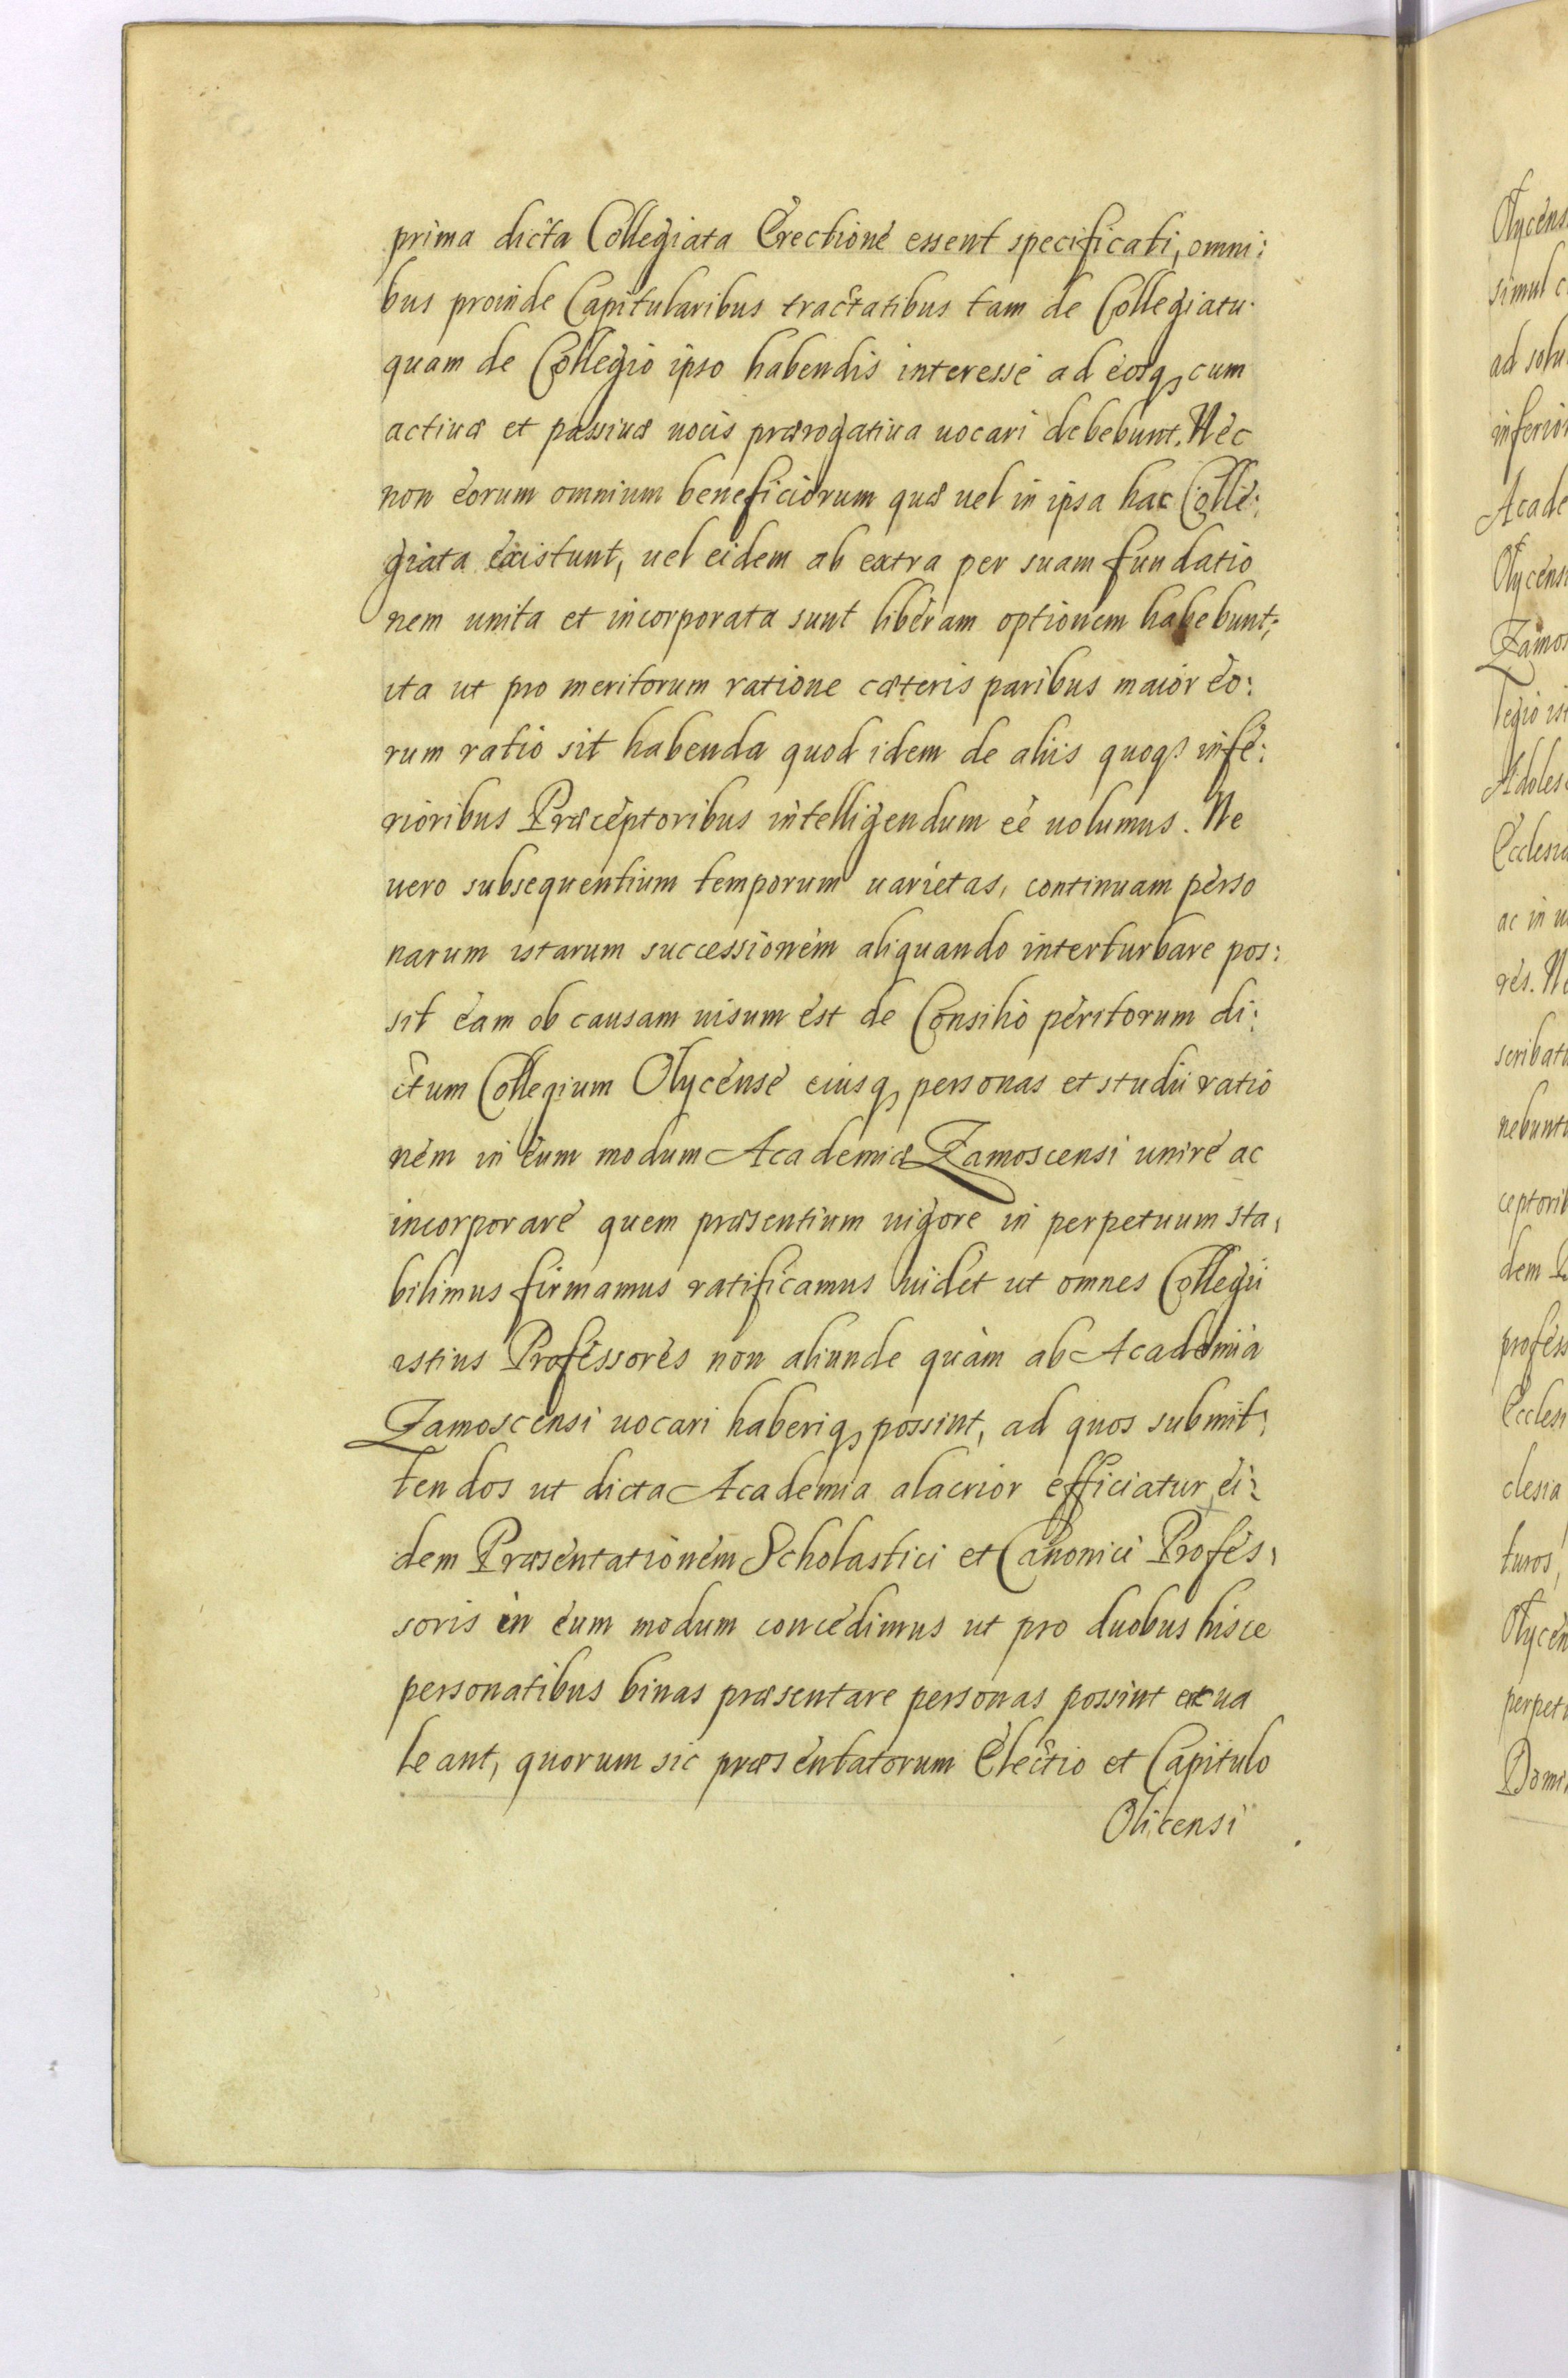 prima dicta Collegiata Erectione essent specificati, omni:
bus proinde Capitularibus tractatibus tam de Collegiatu
quam de Collegio ipso habendis interesse ad eosq₃ cum
actiuæ et passiuæ uocis prærogatiua uocari debebunt. Nec
non eorum omnium beneficiorum quæ uel in ipsa hac Colle:
giata existunt, uel eidem ab extra per suam fundatio
nem unita et incorporata sunt liberam optionem habebunt;
ita ut pro meritorum ratione cæteris paribus maior eo:
rum ratio sit habenda quod idem de aliis quoq₃ infe:
rioribus Præceptoribus intelligendum eé uolumus. Ne
uero subsequentium temporum uarietas, continuam perso
narum istarum successionem aliquando interturbare pos:
sit eam ob causam uisum est de Consilio peritorum di:
ctum Collegium Olycense eiusq₃ personas et studii ratio
nem in eum modum Academiæ Zamoscensi unire ac
incorporare quem præsentium uigore in perpetuum sta,
bilimus firmamus ratificamus uidet ut omnes Collegii
istius Professores non aliunde quàm ab Academia
Zamoscensi uocari haberiq₃ possint, ad quos submit:
tendos ut dicta Academia alacrior efficiatur, ei:
dem Præsentationem Scholastici et Canonici Profes,
soris in eum modum concedimus ut pro duobus hisce
personatibus binas præsentare personas possint et ua
leant, quorum sic præsentatorum Electio et Capitulo
Olicensi
Olycens
simul c
ad solu
inferior
Acade
Olycens
Zamos
legio ist
Adoles
Ecclesia
ac in u
res. Ne
scribatu
nebuntu
ceptorib
dem
profess
Eccles
clesia
turos,
Olycen
perpetu
Domi